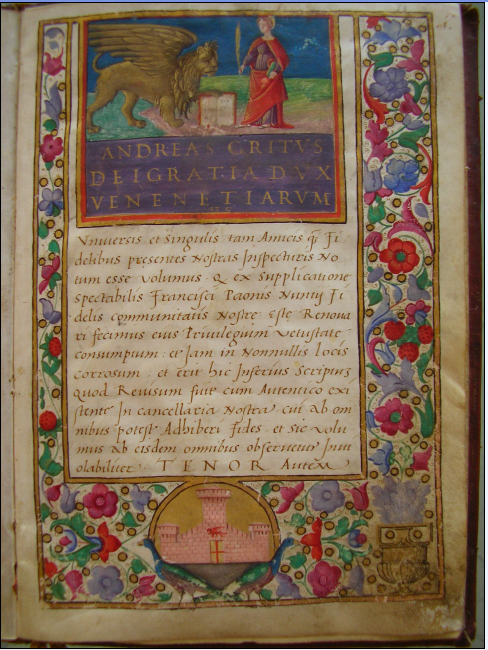 ANDREAS GRITVS
DEI GRATIA DVX
VENENETIARVM
Vniuersis et Singulis tam Amicis q̃ Fi
delibus presentes Nostras Inspecturis No
tum esse Volumus. Q ex Supplicatione
spectabilis Francisci Paonis Nuntij Fi
delis communitatis Nostre Este Renoua
ri fecimus eius Priuilegium Vetustate
consumptum: et Iam in Nonnullis Locis
corrosum: et erit hic Inferius Scriptus
quod Reuisum fuit cum Autentico exi
stente In cancellaria Nostra cui ab om
nibus potest Adhiberi fides et sic Volu
mus ab eisdem omnibus obseruetur Inui
olabiliter. TENOR Autem